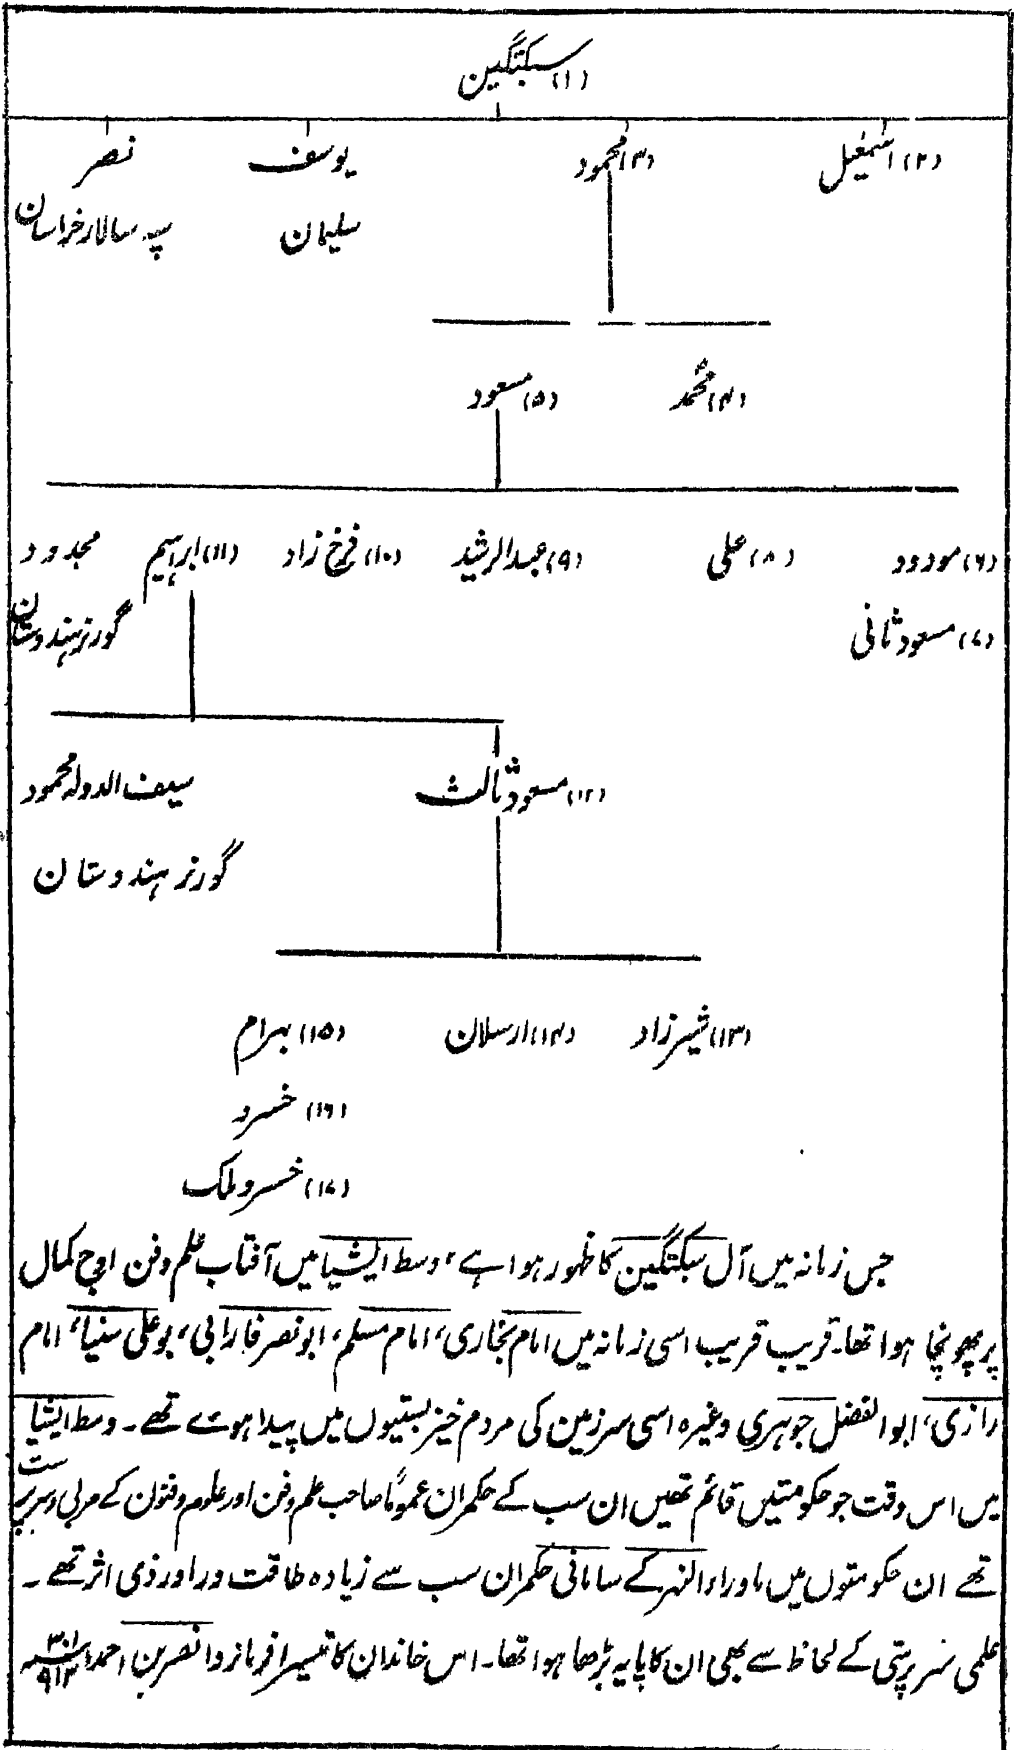 (۱) سبکتگین
(۲) اسمٰعیل (۳) محمود یوسف نصر
سلیمان سپہ سالار خراسان
(۴) محمدؐ (۵) مسعود
(۶) مودود (۸) علی (۹) عبدالرشید (۱۰) فرخ زاد (۱۱) ابراہیم مجدود
(۷) مسعود ثانی گورنر ہندوستان
(۱۲) مسعود ثالث سیف الدولہ محمود
گورنر ہندوستان
(۱۳) شیرزاد (۱۴) ارسلان (۱۵) بہرام
(۱۶) خسرو
(۱۷) خسرو ملک
جس زمانہ میں آل سبکتگین کا ظہور ہوا ہے، وسط ایشیا میں آفتاب علم و فن اوج کمال
پر پھونچا ہوا تھا۔ قریب قریب اسی زمانہ میں امام بخاری، امام مسلم، ابونصر فارابی، بوعلی سنیا، امام
رازی، ابوالفضل جوہری وغیرہ اسی سرزمین کی مردم خیز بستیوں میں پیدا ہوے تھے۔ وسط ایشیا
میں اس وقت جو حکومتیں قائم تھیں ان سب کے حکمران عموماً صاحب علم و فن اور علوم و فنون کے مربی و سرپرست
تھے ان حکومتوں میں ماوراء النہر کے سامانی حکمران سب سے زیادہ طاقت ور اور ذی اثر تھے۔
علمی سرپرستی کے لحاظ سے بھی ان کا پایہ بڑھا ہوا تھا۔ اس خاندان کا تیسرا فرمانروا نصر بن احمد ۳۰۱ ۹۱۳